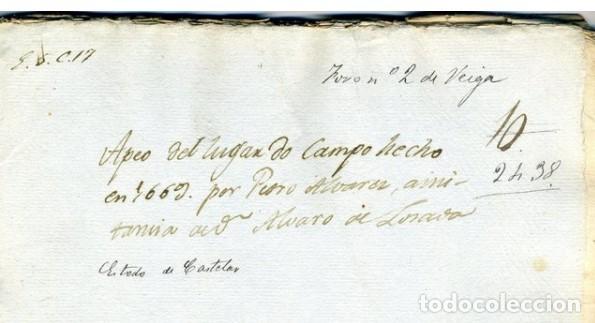 E. 5. C. 17
Foro nº 2 de Veiga
Apeo del lugar do Campo hecho
en 1669. por Pedro Alvarez, a ins-
tancia de Dn Alvaro de Losada
2 h 38
Estado de Castelar
todocoleccion